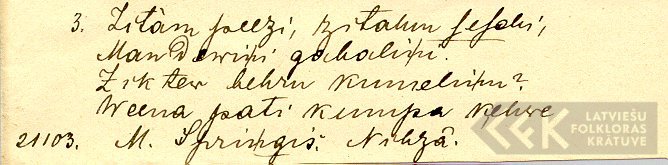 3. Zitàm peezi, zitahm seschi,
Man Dewiņi gabaliņi.
Zik tew behru kumeliņu?
Weena pati kumpa kehwe
21103. M. Spriņgis. Nihzâ.
LATVIEŠU
FOLKLORAS
KRĀTUVE